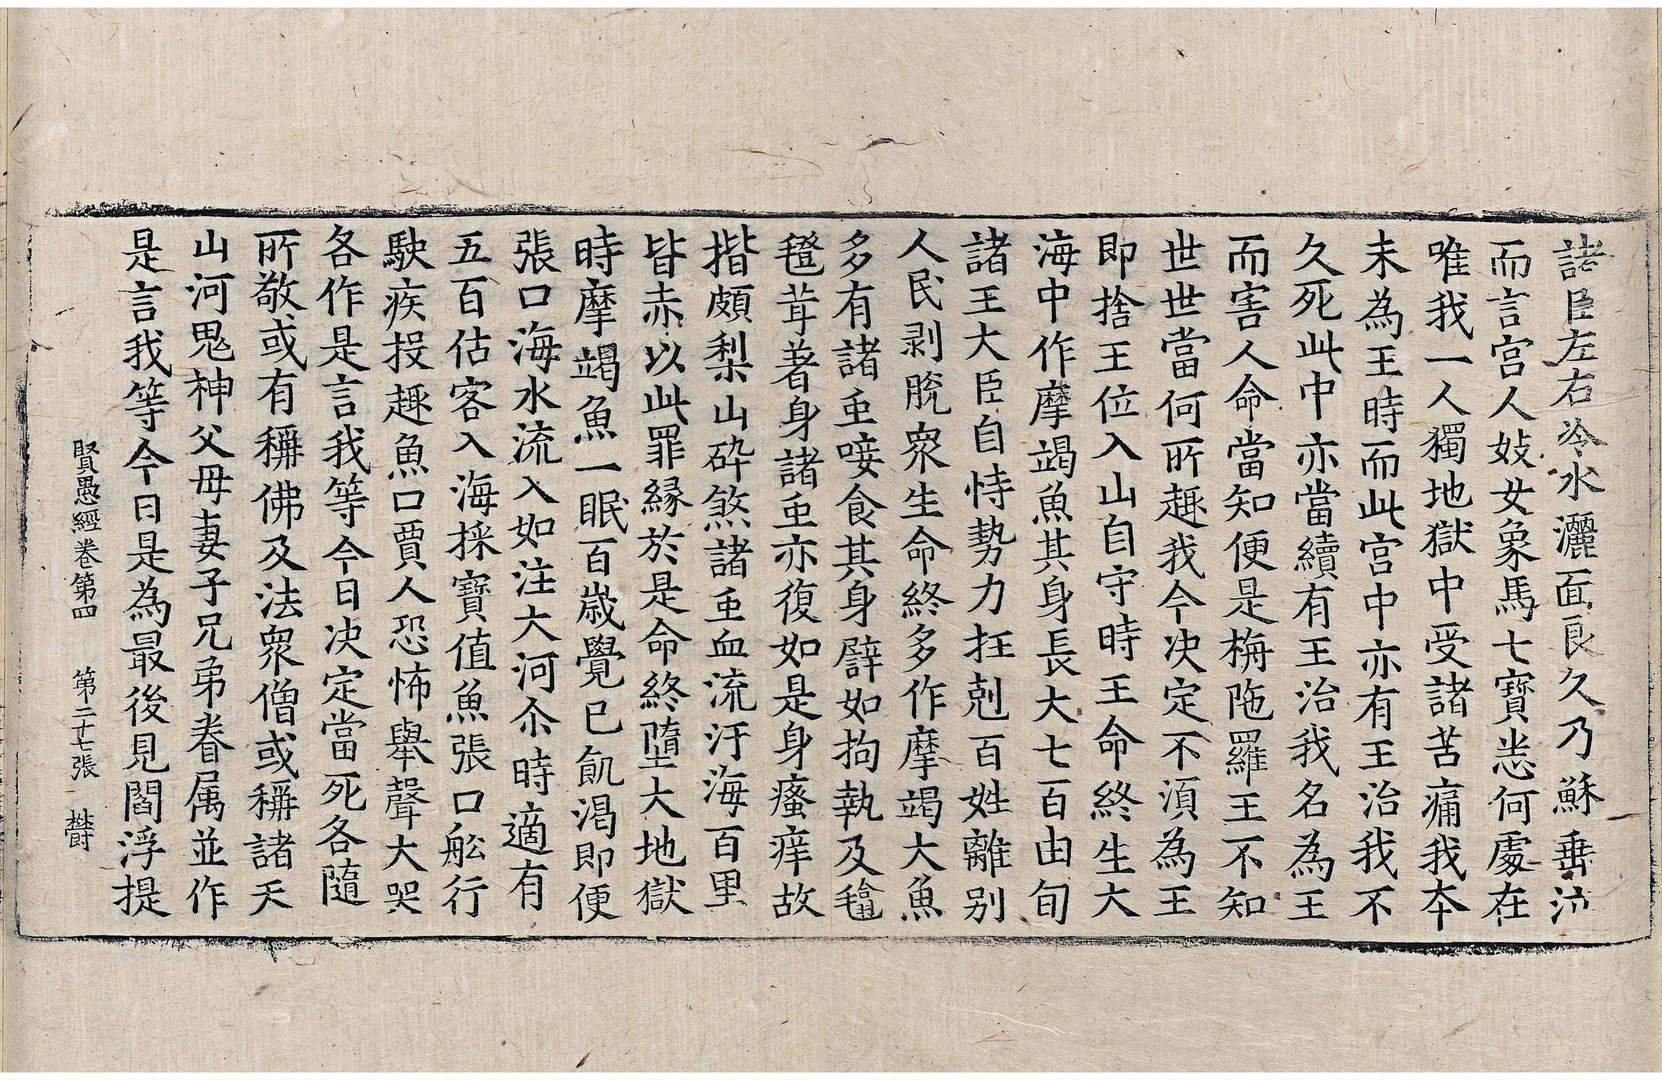 諸臣左右冷水灑面良久乃蘇垂泣
而言宮人妓女象馬七寶悉何處在
唯我一人獨地獄中受諸苦痛我夲
未為王時而此宮中亦有王治我不
久死此中亦當續有王治我名為王
而害人命當知便是栴陁羅王不知
世世當何所趣我今决定不湏為王
即捨王位入山自守時王命終生大
海中作摩竭魚其身長大七百由旬
諸王大臣自恃勢力抂剋百姓離别
人民剥脫衆生命終多作摩竭大魚
多有諸䖝唼食其身譬如拘執及𣰽
㲪茸著身諸䖝亦復如是身瘙痒故
揩頗梨山碎煞諸䖝血流汙海百里
皆赤以此罪緣於是命終墮大地獄
時摩竭魚一眠百歲覺已飢渴即便
張口海水流入如注大河尒時適有
五百估客入海採寶值魚張口舩行
駛疾投趣魚口賈人恐怖舉聲大哭
各作是言我等今日决定當死各隨
所敬或有稱佛及法衆僧或稱諸天
山河鬼神父母妻子兄弟眷属並作
是言我等今日是為最後見閻浮提
賢愚經卷第四 第二十七張 欝